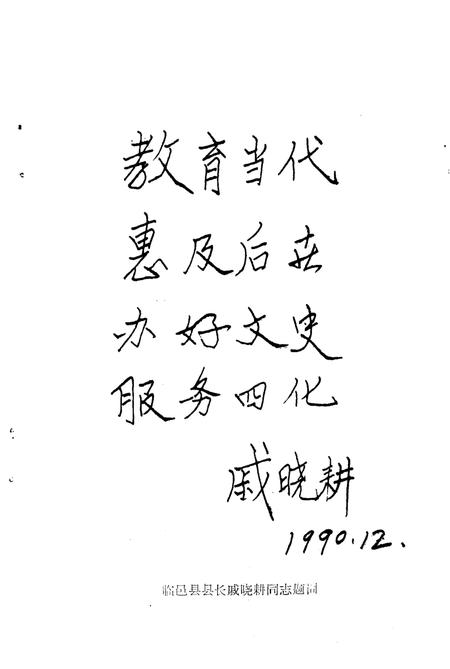 教育当代
惠及后世
办好文史
服务四化
戚晓耕
1990.12.
临邑县县长戚晓耕同志题词